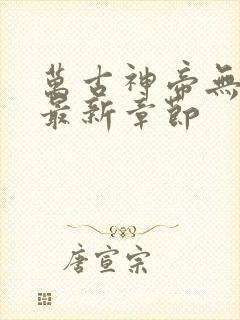 萬古神帝無
最新章節
唐宣宗